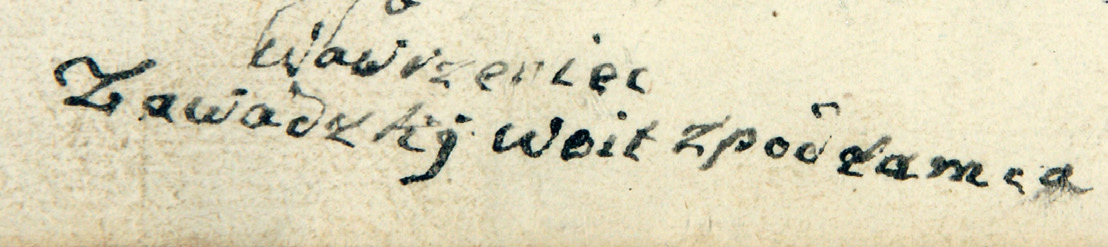 Wawrzeniec
Zawadzkij woit zpodzamca